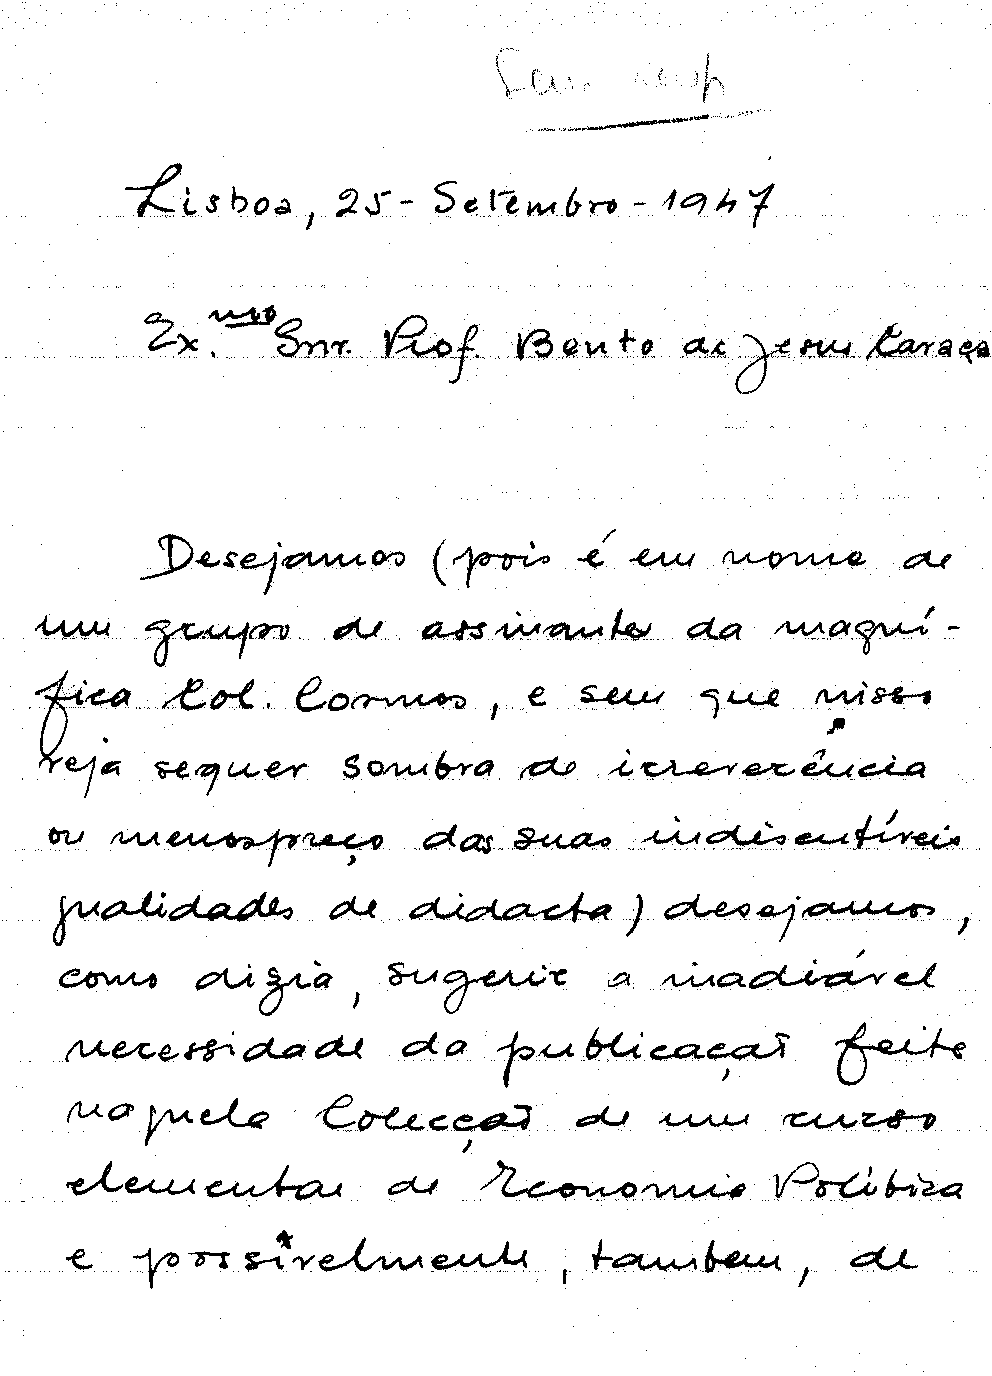 Sem resp
Lisboa, 25 - Setembro - 1947
Ex.mo Snr. Prof. Bento de Jesus Caraça
Desejamos (pois é em nome de
um grupo de assinantes da magní-
fica Col. Cosmos, e sem que nisso
veja sequer sombra de irreverência
ou menospreço das suas indiscutíveis
qualidades de didacta) desejamos,
como dizia, sugerir a inadiável
necessidade da publicação feita
naquela Colecção de um curso
elementar de Economia Política
e possivelmente, tambem, de